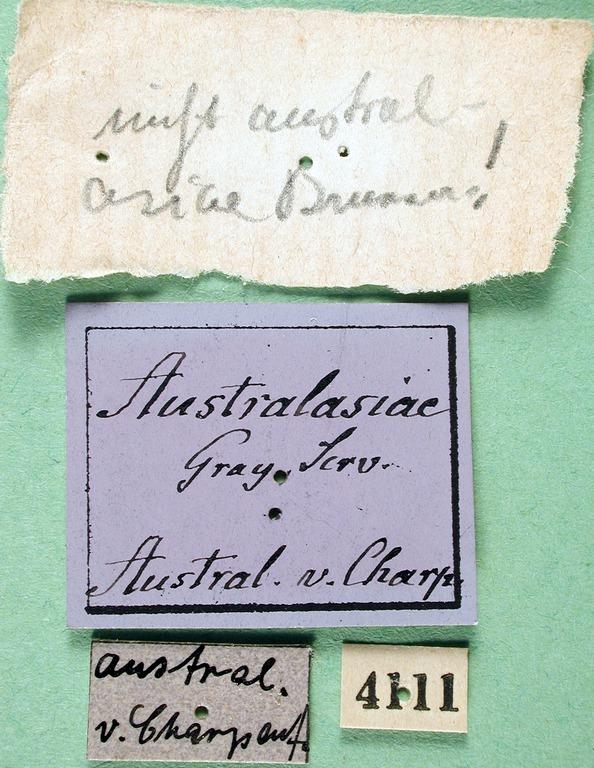 nicht austral-
asiae Brunner!
Australasiae
Gray. Serv.
Austral. v. Charp.
austral.
v. Charpent.
4111